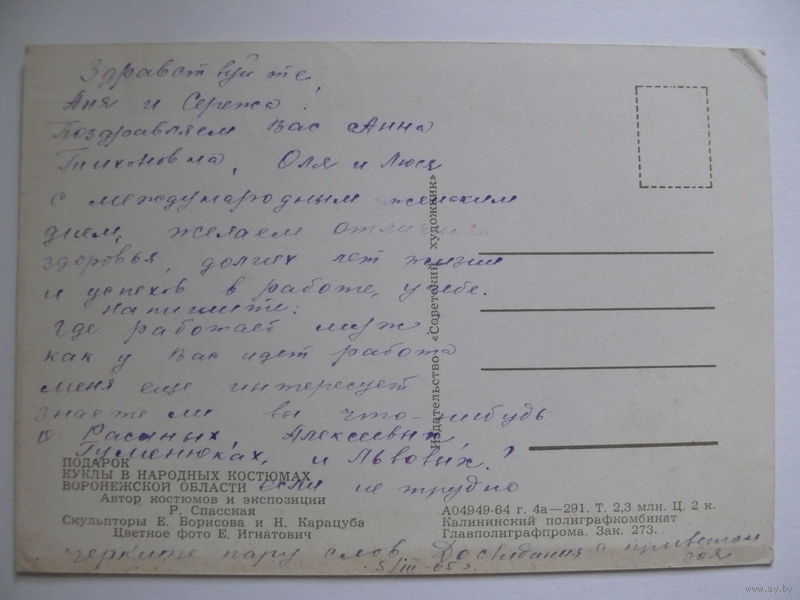 Здравствуйте
Аня и Сережа!
Поздравляем Вас Анна
Тихоновна, Оля и Люся
с международным женским
днем, желаем отличного
здоровья, долгих лет жизни
и успехов в работе, учебе.
Напишите:
где работает муж
как у Вас идет работа
меня еще интересует
знаете ли вы что-нибудь
о Алексевых
Гуменюках, и Львовых?
если не трудно
черкните пару слов. Досвидания с приветом
5/III-65г.
Издательство «Советский художник»
ПОДАРОК
КУКЛЫ В НАРОДНЫХ КОСТЮМАХ
ВОРОНЕЖСКОЙ ОБЛАСТИ
Автор костюмов и экспозиции
Р. Спасская
Скульпторы Е. Борисова и Н. Карацуба
Цветное фото Е. Игнатович
А04949-64 г. 4а—291. Т. 2,3 млн. Ц. 2 к.
Калининский полиграфкомбинат
Главполиграфпрома. Зак. 273.
www.ay.by